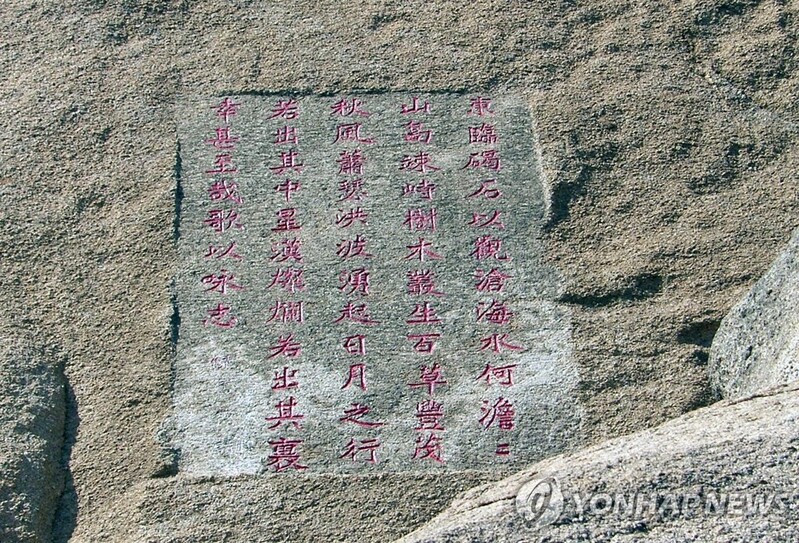 東臨碣石以觀滄海水何澹二
山島竦峙樹木叢生百草豐茂
秋風蕭瑟洪波湧起日月之行
若出其中星漢燦爛若出其裏
幸甚至哉歌以咏志
YONHAP NEWS